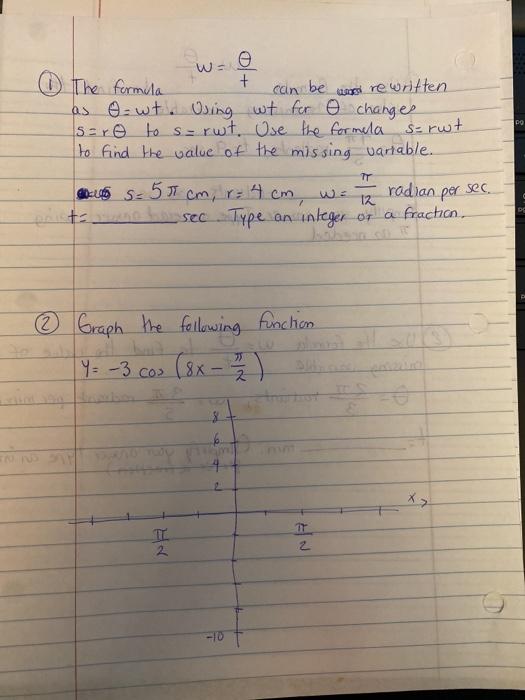 w = θ/t
① The formula can be rewritten
as θ = wt. Using wt for θ changes
s = rθ to s = rwt. Use the formula s = rwt
to find the value of the missing variable.
s = 5π cm, r = 4 cm, w = π/12 radian per sec.
t = ______ sec. Type an integer or a fraction.
② Graph the following function
y = -3 cos (8x - π/2)
8
6
4
2
x
π/2 π/2
-10